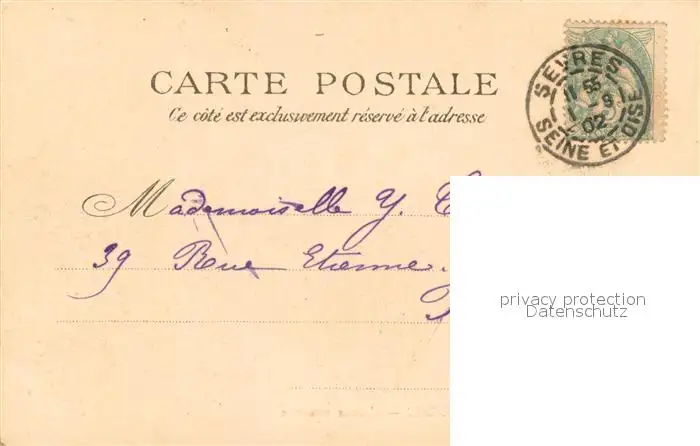 CARTE POSTALE
Ce côté est exclusivement réservé à l'adresse
SEVRES
9
02
SEINE ET OISE
Mademoiselle Y. C
39 Rue Etienne
privacy protection
Datenschutz